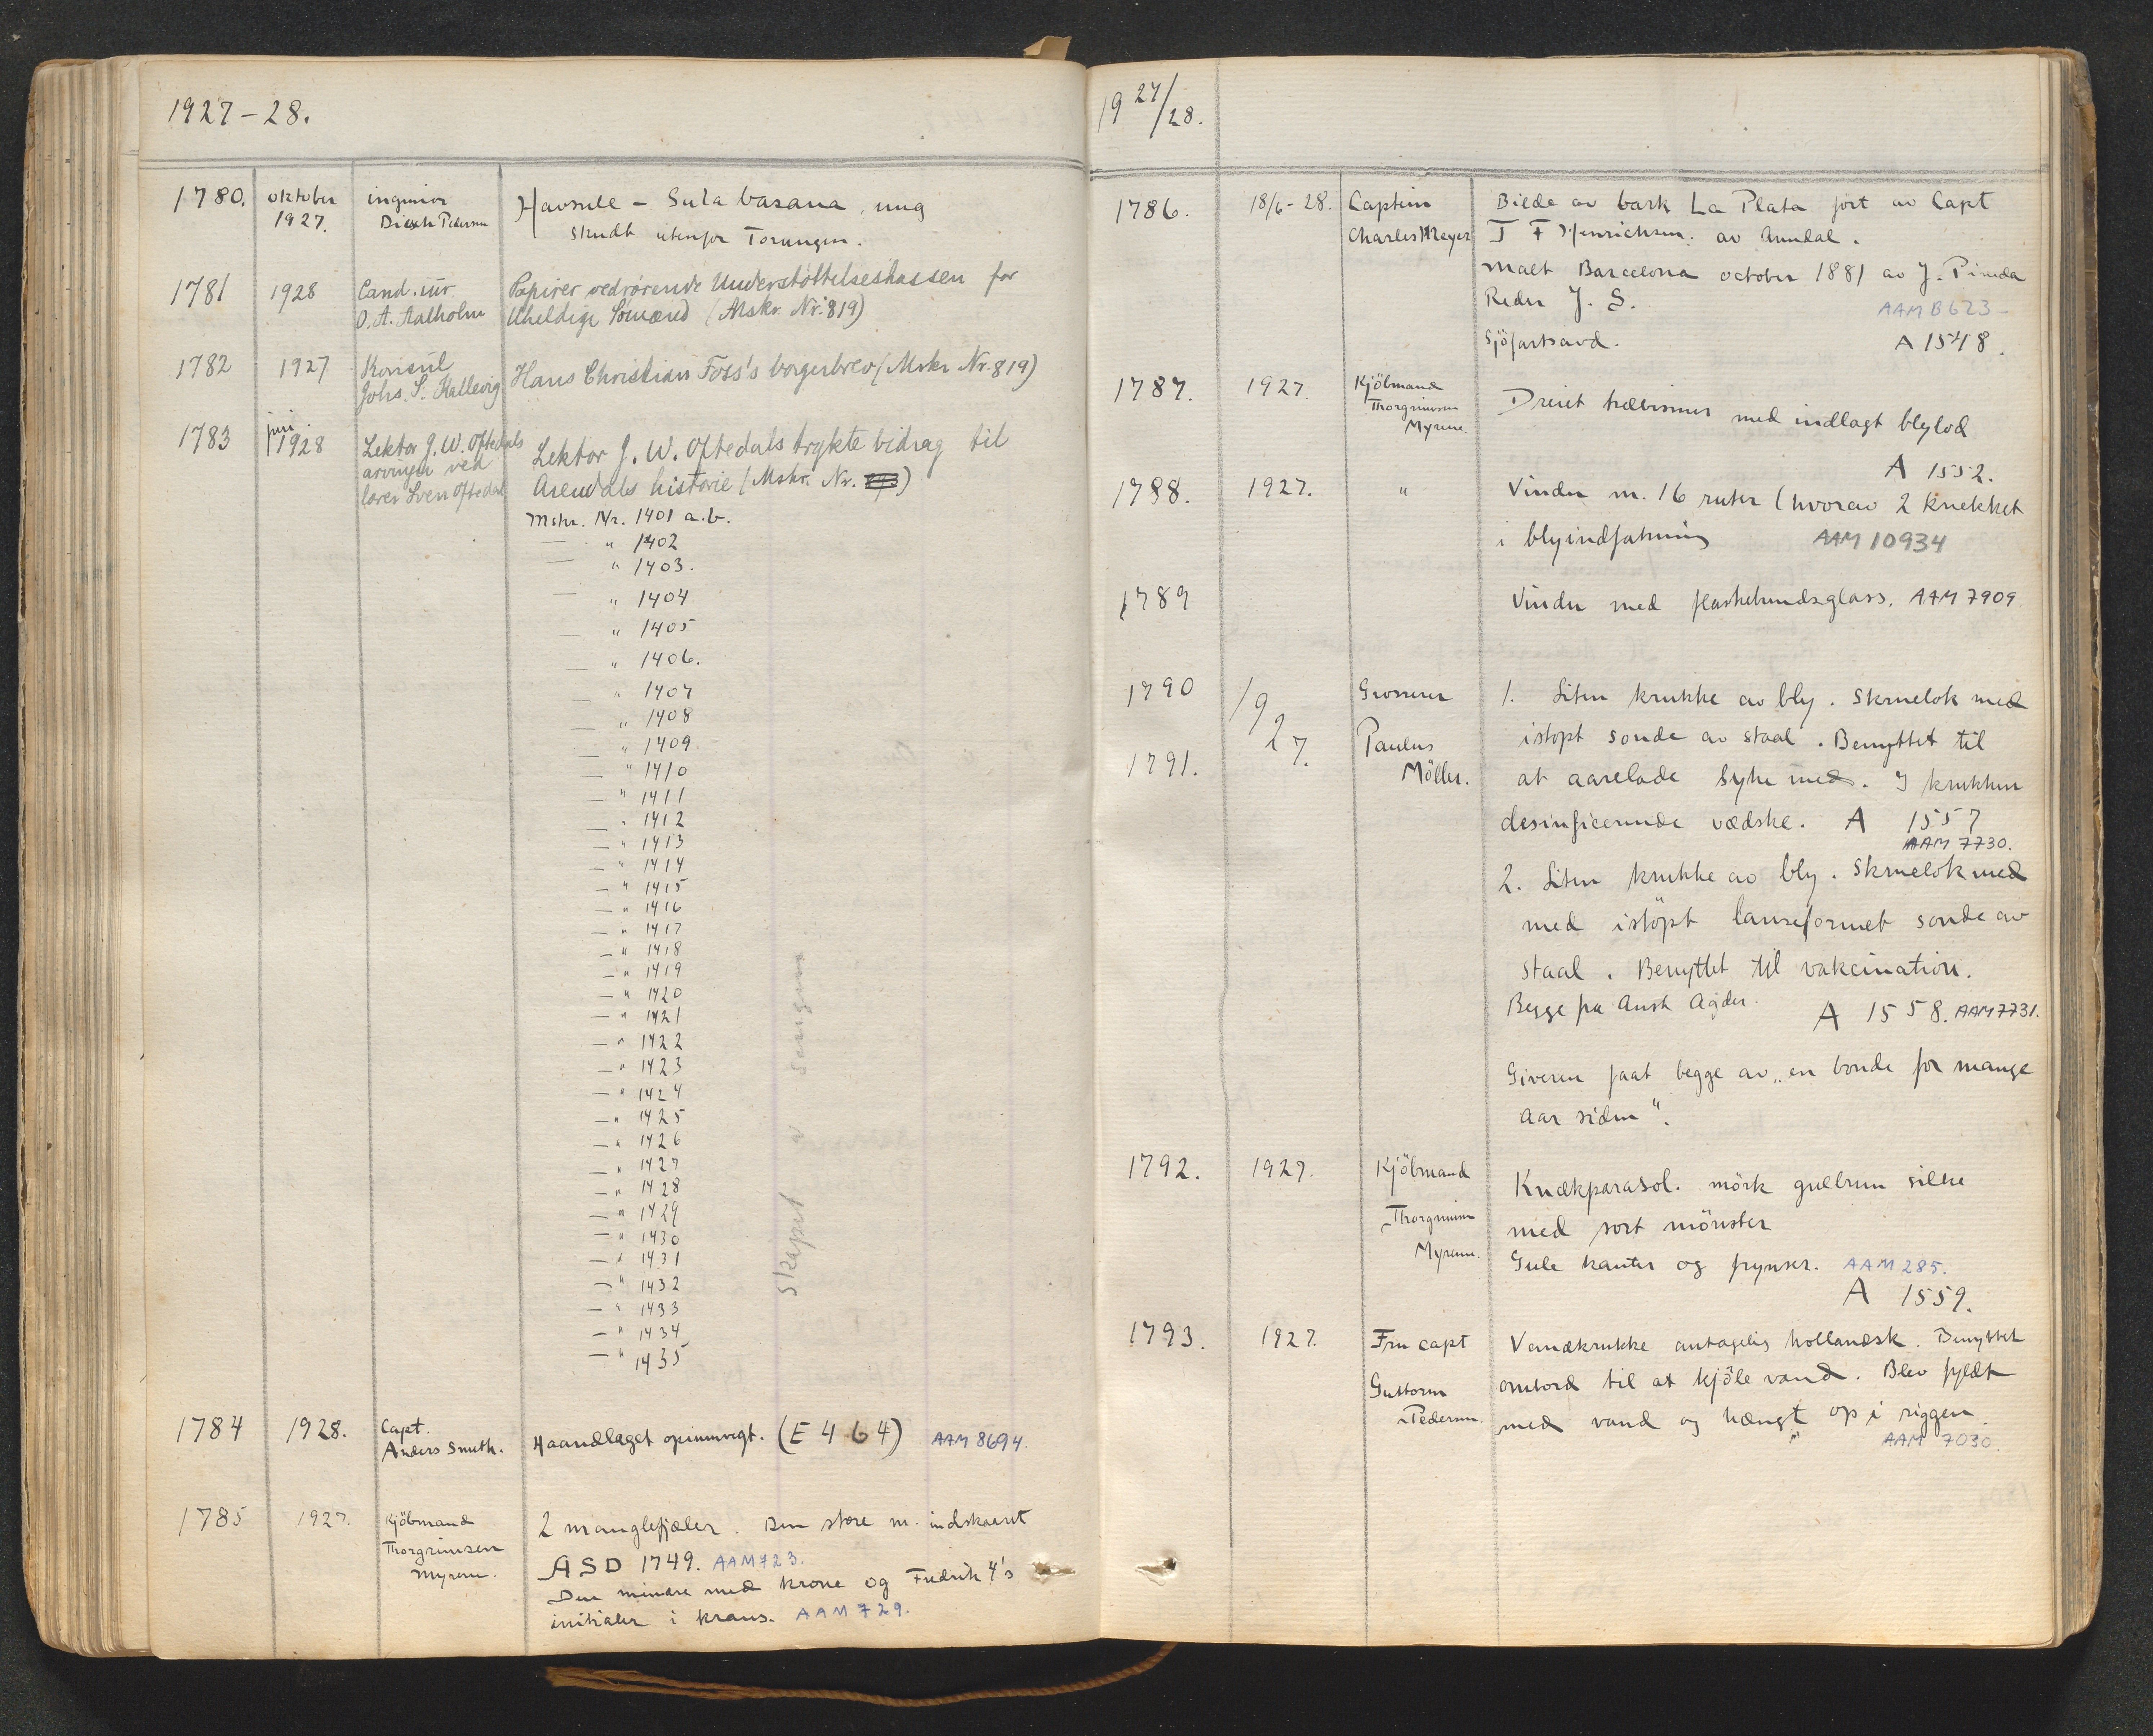 1927-28.
1780. oktober 1927. ingeniør Diesch Pedersen Havsule - Sula basana, ung
skudt utenfor Torungen.
1781 1928 Cand. iur. O. A. Aalholm Papirer vedrørende Understøttelseskassen for
Uheldige Sömænd (Mskr. Nr. 819)
1782 1927 Konsul Johs. S. Kallevig Hans Christian Foss's borgerbrev (Mskr Nr. 819)
1783 juni 1928 Lektor J. W. Oftedals arvinger ved lærer Sven Oftedal Lektor J. W. Oftedals trykte bidrag til
Arendals historie (Mskr. Nr. )
Mskr. Nr. 1401 a.b.
— " 1402
— " 1403.
— " 1404
— " 1405
— " 1406.
— " 1407
— " 1408
— " 1409.
— " 1410
— " 1411
— " 1412
— " 1413
— " 1414
— " 1415
— " 1416
— " 1417
— " 1418
— " 1419
— " 1420
— " 1421
— " 1422
— " 1423
— " 1424
— " 1425
— " 1426
— " 1427
— " 1428
— " 1429
— " 1430
— " 1431
— " 1432
— " 1433
— " 1434
— " 1435
Skapet
1784 1928. Capt. Anders Smith. Haandlaget opiumvegt. (E 464) AAM 8694.
1785 1927. Kjöbmand Thorgrimsen Myrene. 2 manglefjæler. Den store m. indskaaret
ASD 1749. AAM 723.
Den mindre med krone og Fredrik 4's
initialer i krans. AAM 729.
19 27/28.
1786. 18/6-28. Captein Charles Meyer Billede av bark La Plata ført av Capt
J F Henrichsen. av Arendal.
malt Barcelona october 1881 av J. Pineda
Reder J. S. AAM B 623-
Sjöfartsavd. A 1548.
1787. 1927. Kjöbmand Thorgrimsen Myrene. Dreiet træbismer med indlagt blylod
A 1552.
1788. 1927. " Vindu m. 16 ruter (hvorav 2 knekket
i blyindfatning AAM 10934
1789 Vindu med flaskebundsglass. AAM 7909
1790 1927. Grosserer 1. Liten krukke av bly. Skruelok med
1791. Paulus Möller. istöpt sonde av staal. Benyttet til
at aarelade syke med. I krukken
desinficerende vædske. A 1557
AAM 7730.
2. Liten krukke av bly. Skruelok med
med istöpt lanseformet sonde av
staal. Benyttet til vakcination.
Begge fra Aust Agder. A 1558. AAM 7731.
Giveren faat begge av „en bonde for mange
aar siden“.
1792. 1927. Kjöbmand Thorgrimsen Myrene. Knækparasol. mörk gulbrun silke
med sort mönster
Gule kanter og frynser. AAM 285.
A 1559.
1793. 1927. Fru capt Guttorm Pedersen. Vandkrukke antagelig hollandsk. Benyttet
ombord til at kjöle vand. Blev fyldt
med vand og hængt op i riggen.
AAM 7030.